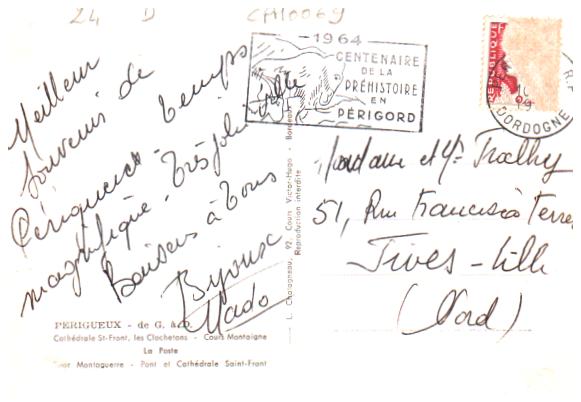 24 D CA10069
1964
CENTENAIRE
DE LA
PRÉHISTOIRE
EN
PÉRIGORD
REPUBLIQUE
DORDOGNE
Meilleur
souvenir de
Périgueux - temps
magnifique. Très jolie ville
Baisers à tous
Bijoux
Mado
Madame et Mr
51, Rue Francisco Ferrer
Fives-Lille
(Nord)
L. Charagneau, 92, Cours Victor-Hugo - Bordeaux
Reproduction interdite
PERIGUEUX - de G. à D.
Cathédrale St-Front, les Clochetons - Cours Montaigne
La Poste
Montaguerre - Pont et Cathédrale Saint-Front